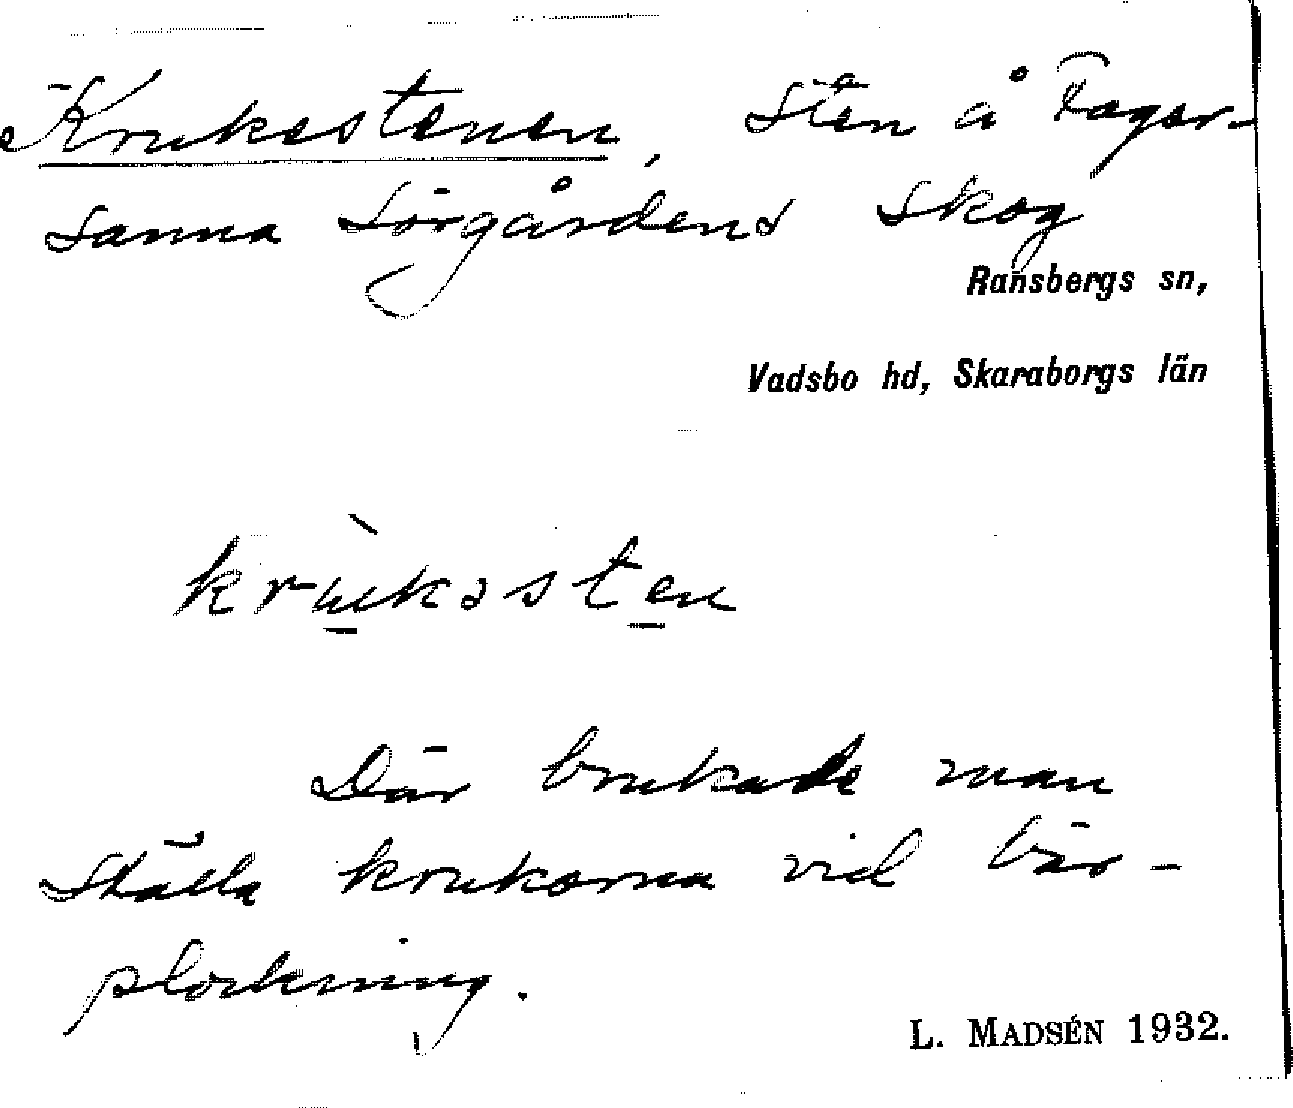 Krukestenen, Sten å Fager-
sanna Sörgårdens skog
Ransbergs sn,
Vadsbo hd, Skaraborgs län
krùkəsten
Där brukade man
ställa krukorna vid bär-
plockning.
L. MADSÉN 1932.